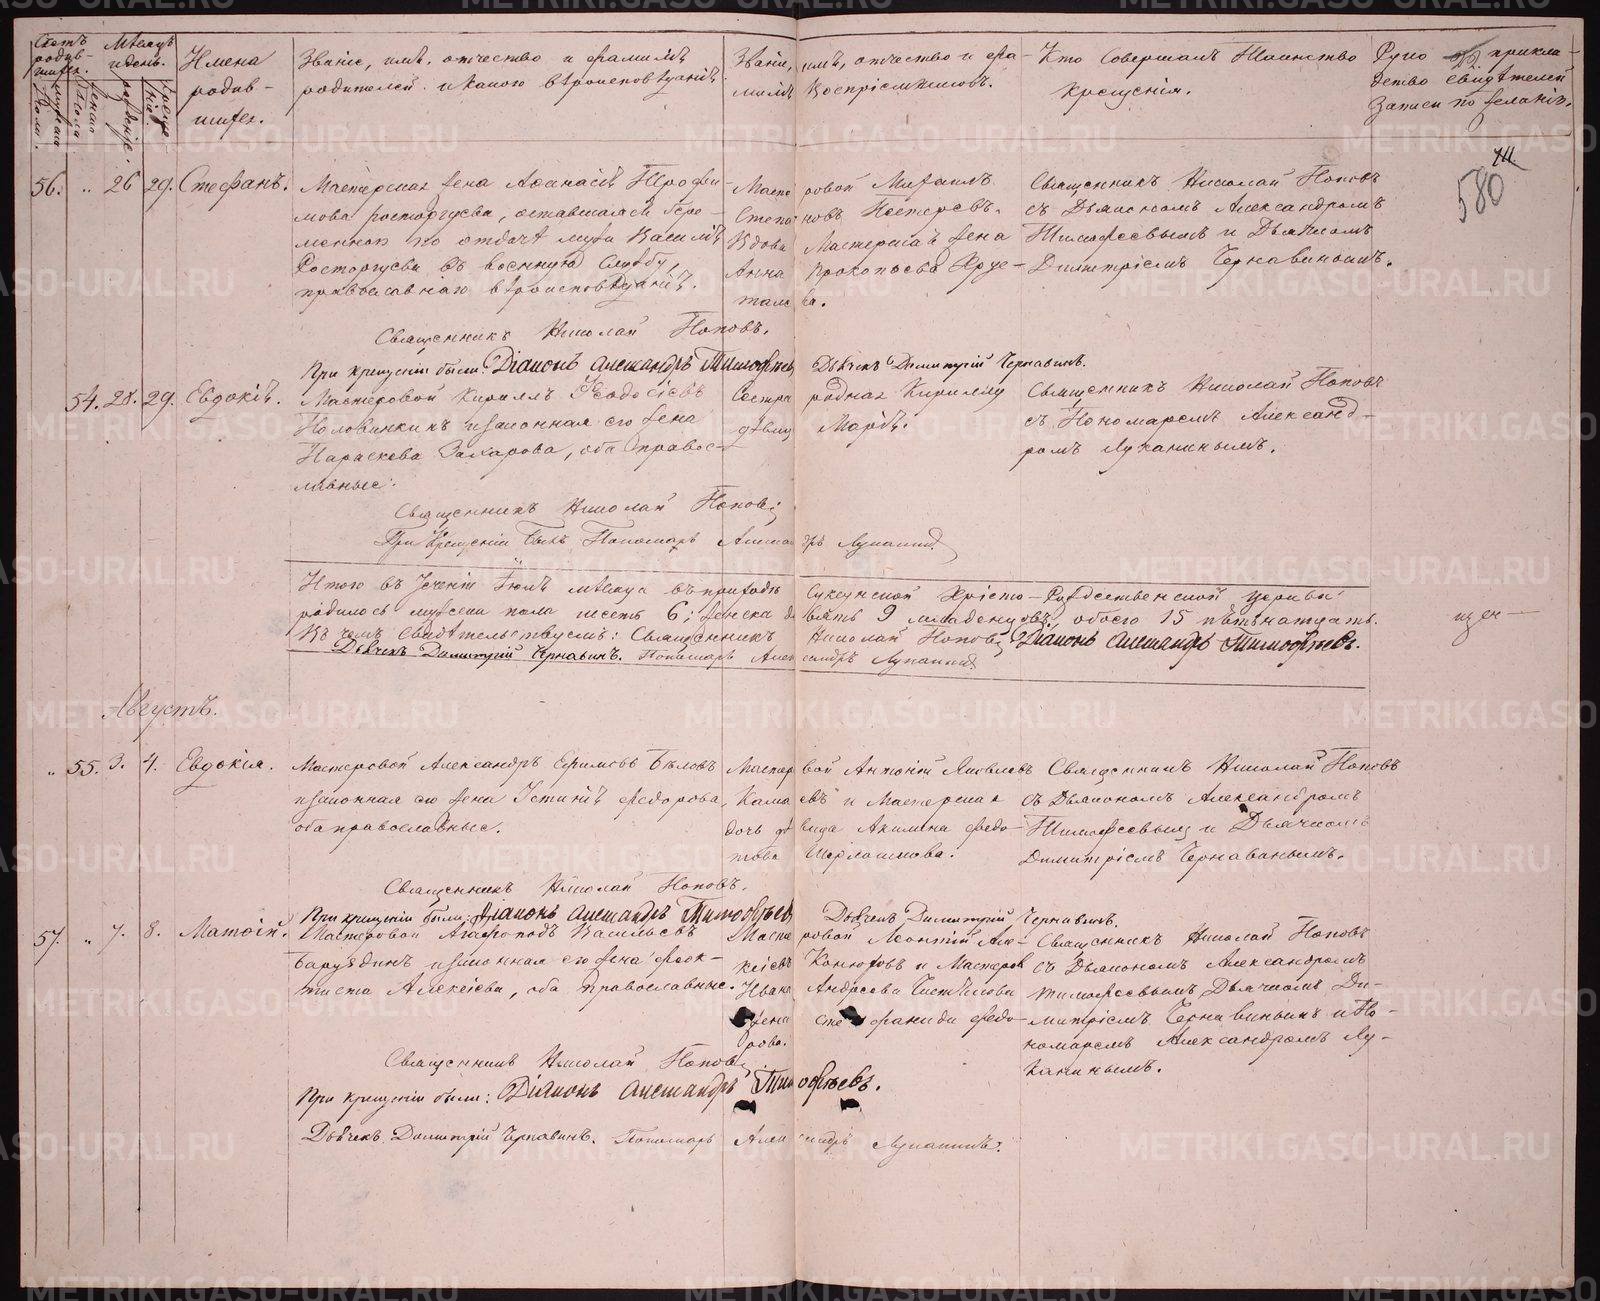 Счетъ родив-шихся.
Мѣсяцъ и день.
Имена родив-шихся.
Званіе, имя, отчество и фамилія родителей и какого вѣроисповѣданія.
Званіе, имя, отчество и фа-милія Воспріемниковъ.
Кто Совершалъ Таинство Крещенія.
Руко прикла-детво свидѣтелей Записи по желанію.
580
56. " 26 29. Стефанъ.
Мастерская жена Афанасія Трофи-
мова Расторгуева, оставшаяся бере-
менной по отдачѣ мужа Василія
Расторгуева въ военную службу,
православнаго вѣроисповѣданія.
Мастеровой Михаилъ
Степановъ Нестеровъ.
Вдова Мастерская жена
Анна Прокопьева Хруе-
талева.
Священникъ Николай Поповъ
съ Дьякономъ Александромъ
Тимофеевымъ и Дьячкомъ
Димитріемъ Чернавинымъ.
Священникъ Николай Поповъ.
При крещеніи были: Діаконъ Александръ Тимофѣевъ Дьячекъ Димитрій Чернавинъ.
54. 28. 29. Евдокія.
Мастеровой Кириллъ Ѳеодосіевъ
Половинкинъ и законная его жена
Параскева Захарова, оба правос-
лавные.
Сестра родная Кириллу
дѣвица Марія.
Священникъ Николай Поповъ
съ Пономаремъ Александ-
ромъ Луканинымъ.
Священникъ Николай Поповъ
При Крещеніи былъ Пономарь Александръ Луканинъ
Итого въ теченіи Іюля мѣсяца въ приходѣ Суксунской Христо-Рождественской церкви
родилось мужеска пола шесть 6; женска девять 9 младенцовъ, обоего 15 пятьнатцать.
Въ чемъ свидѣтельствуемъ: Священникъ Николай Поповъ Діаконъ Александръ Тимофѣевъ.
Дьячекъ Димитрій Чернавинъ. Пономарь Александръ Луканинъ
Августъ.
" 55. 3. 4. Евдокія.
Мастеровой Александръ Ефимовъ Бѣловъ
и законная его жена Устинія Федорова,
оба православные.
Мастеровой Антоній Яковлевъ
Кама евъ и Мастерская
дочь дѣвица Акилина Федо-
това Шерлашкова.
Священникъ Николай Поповъ
съ Дьякономъ Александромъ
Тимофеевымъ и Дьячкомъ
Димитріемъ Чернавинымъ.
Священникъ Николай Поповъ.
При крещеніи были: Діаконъ Александръ Тимофѣевъ Дьячекъ Димитрій Чернавинъ.
57. " 7. 8. Матѳій.
Мастеровой Агафоподъ Васильевъ
и законная его жена Феок-
тиста Алексіева, оба православные.
Мастеровой Леонтій Але-
ксіевъ и Мастеров
Ивана Андреева
жена Стефанида Федо-
рова.
Священникъ Николай Поповъ
съ Дьякономъ Александромъ
Тимофеевымъ Дьячкомъ Ди-
митріемъ Чернавинымъ и По-
номаремъ Александромъ Лу-
канинымъ.
Священникъ Николай Поповъ
При крещеніи были: Діаконъ Александръ Тимофѣевъ.
Дьячекъ Димитрій Чернавинъ. Пономарь Александръ Луканинъ.
METRIKI.GASO-URAL.RU